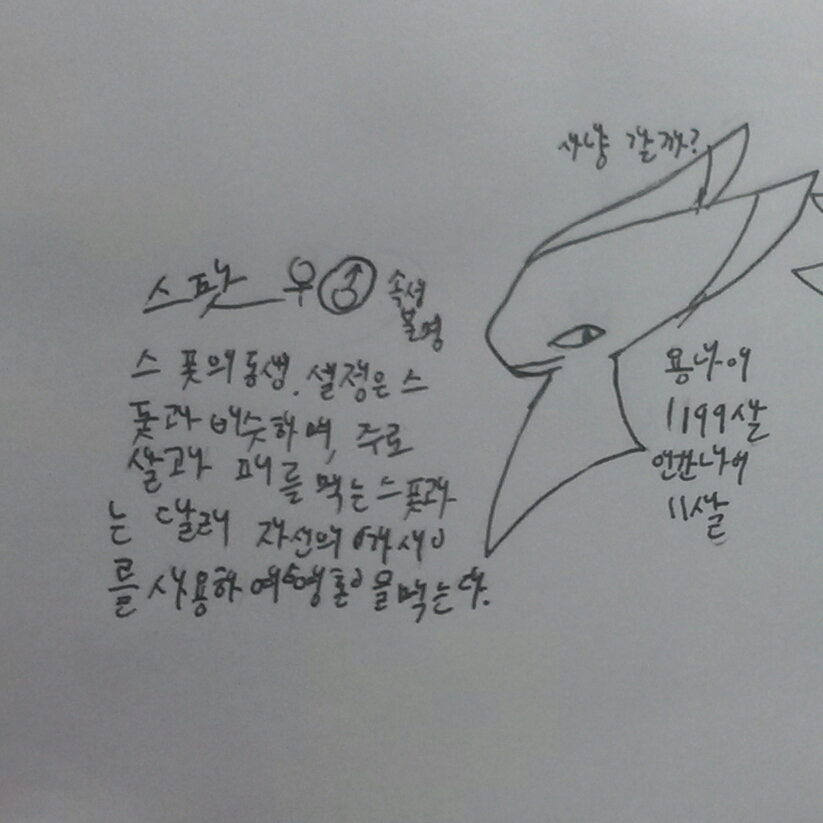 사냥 갈까?
스팟 우 ♂
속성
불명
스폿의 동생. 설정은 스
폿과 비슷하며, 주로
살과 피를 먹는 스폿과
는 달리 자신의
를 사용하여 "영혼"을 먹는다.
용나이
1199살
인간나이
11살